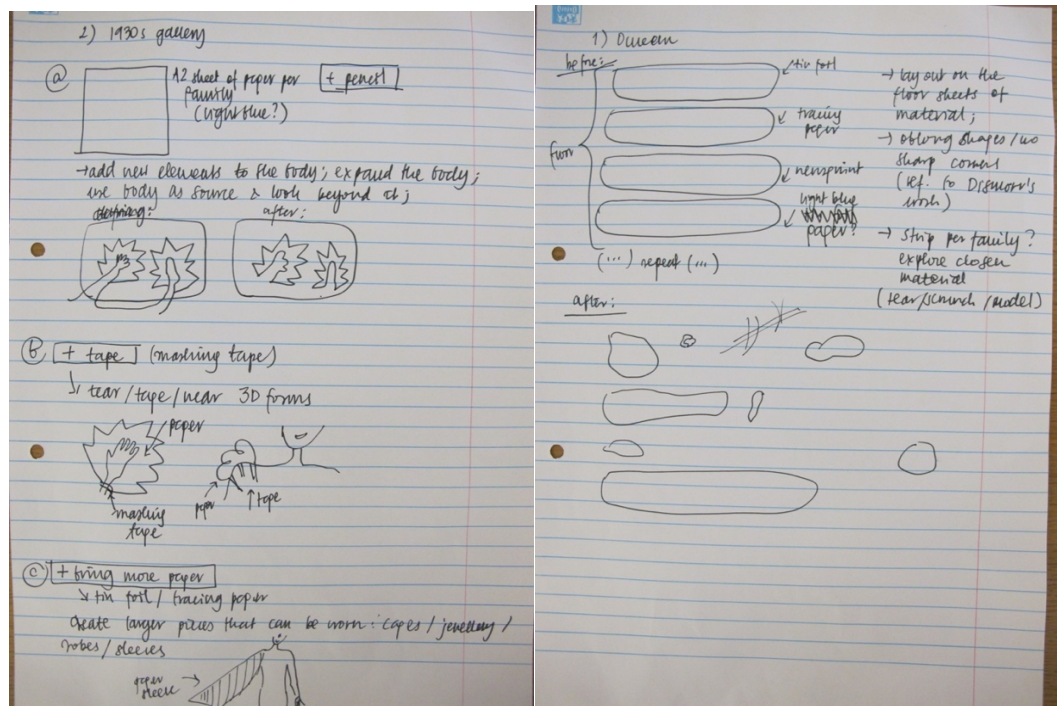 2) 1930s gallery
(a)
A2 sheet of paper per
family
(light blue?)
+ pencil
→ add new elements to the body; expand the body;
use body as source & look beyond it;
during:
after:
(b) + tape (masking tape)
↳ tear/tape/wear 3D forms
paper
masking
tape
paper
tape
(c) + bring more paper
↘ tin foil / tracing paper
Create larger pieces that can be worn: capes / jewellery /
robes / sleeves
paper
sleeve →
1) Duveen
before:
floor
tin foil
tracing
paper
newsprint
light blue
paper?
(...) repeat (...)
→ lay out on the
floor sheets of
material;
→ oblong shapes / no
sharp corners
(ref. to Dismorr's
work)
→ strip per family?
explore chosen
material
(tear/scrunch/model)
after: